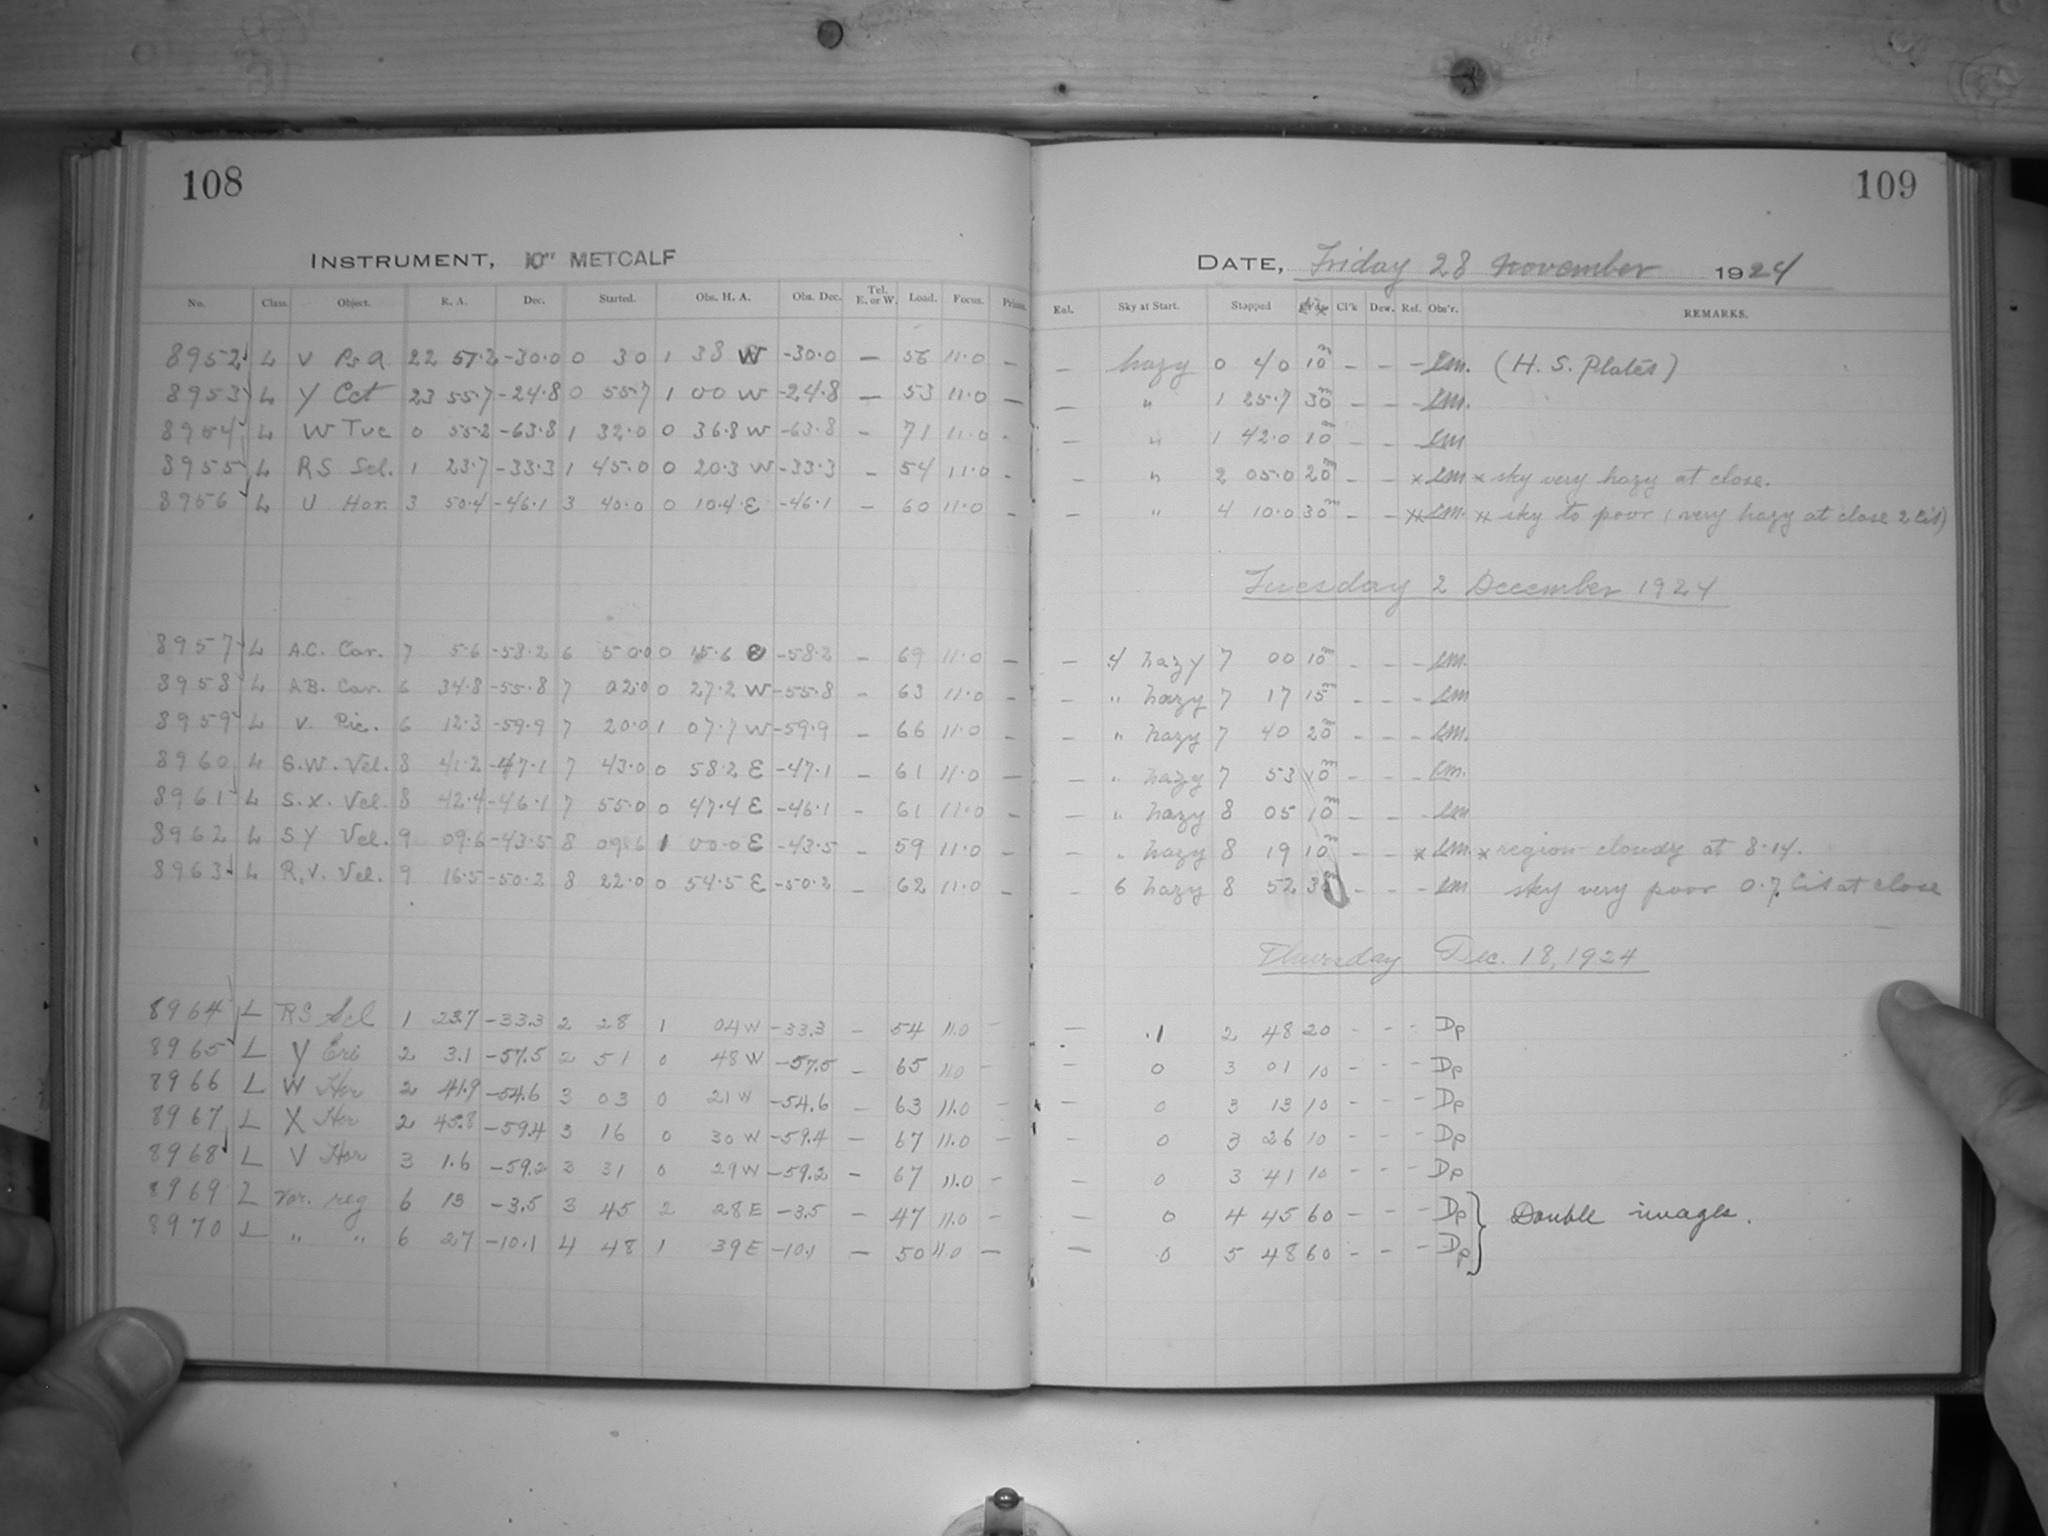 108
INSTRUMENT, 10" METCALF
No. Class. Object. R. A. Dec. Started. Obs. H. A. Obs. Dec. Tel. E. or W. Load. Focus. Prism.
8952 L V PsA 22 57.2 -30.0 0 30 1 38 W -30.0 — 56 11.0 —
8953 L Y Cet 23 55.7 -24.8 0 55.7 1 00 W -24.8 — 53 11.0 —
8954 L W Tuc 0 55.2 -63.8 1 32.0 0 36.8 W -63.8 - 71 11.0 -
8955 L RS Scl. 1 23.7 -33.3 1 45.0 0 20.3 W -33.3 - 54 11.0 -
8956 L U Hor. 3 50.4 -46.1 3 40.0 0 10.4 E -46.1 - 60 11.0 -
8957 L A.C. Car. 7 5.6 -58.2 6 50.0 0 15.6 E -58.2 - 69 11.0 —
8958 L AB. Car. 6 34.8 -55.8 7 02.0 0 27.2 W -55.8 - 63 11.0 -
8959 L V. Pic. 6 12.3 -59.9 7 20.0 1 07.7 W -59.9 - 66 11.0 -
8960 L S.W. Vel. 8 41.2 -47.1 7 43.0 0 58.2 E -47.1 - 61 11.0 —
8961 L S.X. Vel. 8 42.4 -46.1 7 55.0 0 47.4 E -46.1 - 61 11.0 -
8962 L S Y Vel. 9 09.6 -43.5 8 09.6 1 00.0 E -43.5 - 59 11.0 -
8963 L R.V. Vel. 9 16.5 -50.2 8 22.0 0 54.5 E -50.2 - 62 11.0 -
8964 L RS Scl 1 23.7 -33.3 2 28 1 04 W -33.3 - 54 11.0 -
8965 L Y Eri 2 3.1 -57.5 2 51 0 48 W -57.5 - 65 11.0 -
8966 L W Hor 2 41.9 -54.6 3 03 0 21 W -54.6 - 63 11.0 -
8967 L X Hor 2 45.8 -59.4 3 16 0 30 W -59.4 - 67 11.0 -
8968 L V Hor 3 1.6 -59.2 3 31 0 29 W -59.2 - 67 11.0 -
8969 L Var. reg 6 13 -3.5 3 45 2 28 E -3.5 - 47 11.0 -
8970 L " " 6 27 -10.1 4 48 1 39 E -10.1 — 50 11.0 —
109
DATE, Friday 28 November 1924
Eal. Sky at Start. Stopped Cl'k Dew. Ref. Obs'r. REMARKS.
- hazy 0 40 10m - - - LM. (H. S. Plates)
- " 1 25.7 30 - - - LM.
- " 1 42.0 10m - - - LM
- " 2 05.0 20m - - x LM x sky very hazy at close.
- " 4 10.0 30m - - xx LM. xx sky to poor (very hazy at close 2 Cis)
Tuesday 2 December 1924
- .4 hazy 7 00 10m - - - LM.
- " hazy 7 17 15m - - - LM
- " hazy 7 40 20m - - - LM.
- " hazy 7 53 10m - - - LM.
- " hazy 8 05 10m - - - LM
- " hazy 8 19 10m - - x LM. x region cloudy at 8.14.
- 6 hazy 8 52 30 - - - LM sky very poor 0.7 Cis at close
Thursday Dec. 18, 1924
- .1 2 48 20 - - - Dp
- 0 3 01 10 - - - Dp
- 0 3 13 10 - - - Dp
- 0 3 26 10 - - - Dp
- 0 3 41 10 - - - Dp
- 0 4 45 60 - - - Dp } Double images.
- 0 5 48 60 - - - Dp